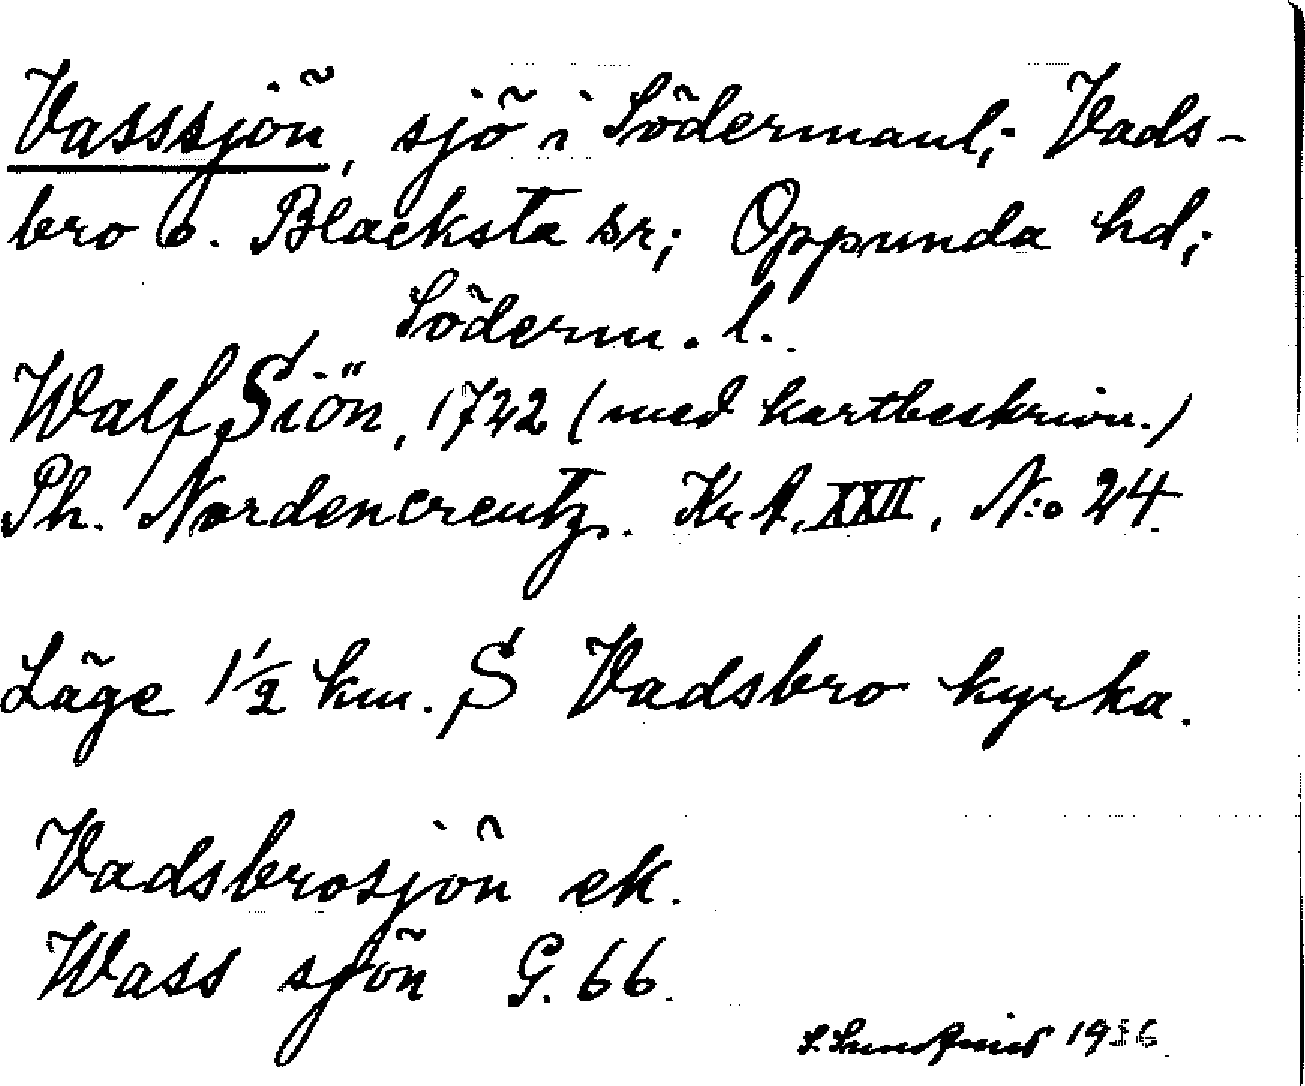 Vasssjön, sjö i Södermanl; Vads-
bro o. Blacksta sr; Oppunda hd;
Söderm. l.
Walf Siön, 1722 (med kartbeskrivn.)
Ph. Nordencreutz. Kr A. XXII, N:o 24.
Läge 1 1/2 km. S Vadsbro kyrka.
Vadsbrosjön ek.
Wass sjön G. 66.
S. Sundqvist 1936.